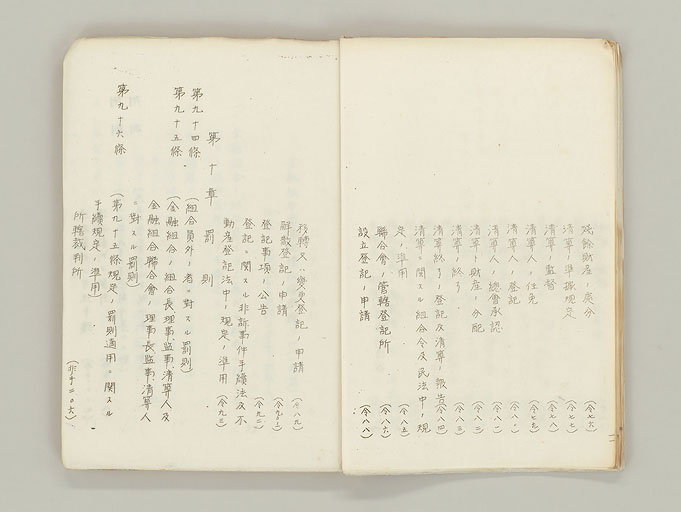 残餘財産ノ處分 (令七六)
清算ノ準據規定 (令七七)
清算ノ監督 (令七八)
清算人ノ任免 (令七九)
清算人ノ登記 (令八〇)
清算人ノ總會承認 (令八一)
清算ノ財産ノ分配 (令八二)
清算ノ終了 (令八三)
清算終了ノ登記及清算ノ報告 (令八四)
清算ニ関スル組合令及民法中ノ規
定ノ準用 (令八五)
聯合會ノ管轄登記所 (令八六)
設立登記ノ申請 (令八八)
移轉又ハ變更登記ノ申請 (令八九)
解散登記ノ申請 (令九〇)
登記事項ノ公告 (令九一)
登記ニ関スル非訟事件手續法及不
動産登記法中ノ規定ノ準用 (令九三)
第十章 罰則
第九十四條 (組合員外ノ者ニ對スル罰則)
第九十五條 (金融組合ノ組合長理事監事清算人及
金融組合聯合會ノ理事長監事清算人
ニ對スル罰則)
第九十六條 (第九十五條規定ノ罰則適用ニ関スル
手續規定ノ準用)
所轄裁判所 (非手二〇六)